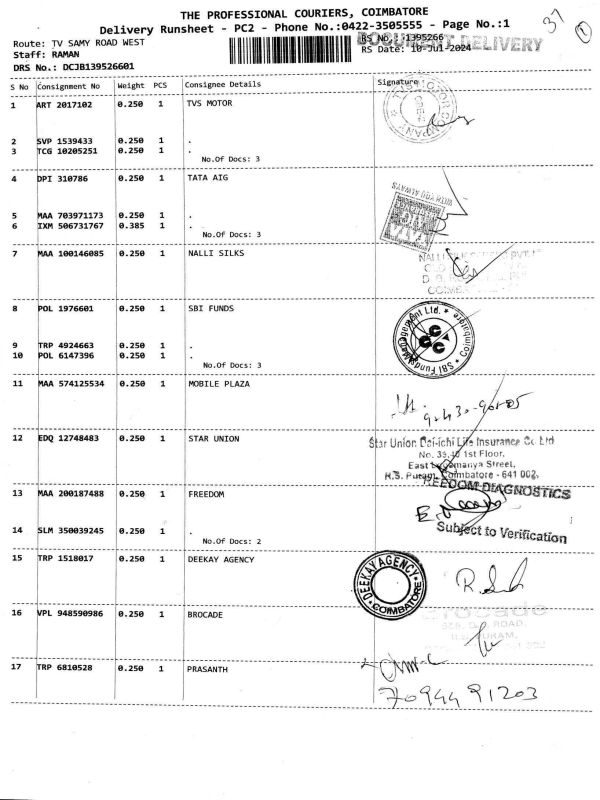 THE PROFESSIONAL COURIERS, COIMBATORE
Delivery Runsheet - PC2 - Phone No.:0422-3505555 - Page No.:1
37
1
Route: TV SAMY ROAD WEST
RS No. :1395266
DOCUMENT DELIVERY
Staff: RAMAN
RS Date: 10-Jul-2024
DRS No.: DCJB139526601
S No Consignment No Weight PCS Consignee Details Signature
1 ART 2017102 0.250 1 TVS MOTOR
2 SVP 1539433 0.250 1 .
3 TCG 10205251 0.250 1 .
No.Of Docs: 3
4 DPI 310786 0.250 1 TATA AIG
WITH YOU ALWAYS
5 MAA 703971173 0.250 1 .
6 IXM 506731767 0.385 1 .
No.Of Docs: 3
7 MAA 100146085 0.250 1 NALLI SILKS
8 POL 1976601 0.250 1 SBI FUNDS
SBI Funds Management Ltd. * Coimbatore *
9 TRP 4924663 0.250 1 .
10 POL 6147396 0.250 1 .
No.Of Docs: 3
11 MAA 574125534 0.250 1 MOBILE PLAZA
12 EDQ 12748483 0.250 1 STAR UNION
Star Union Dai-ichi Life Insurance Co. Ltd
No. 39,40 1st Floor,
East Logamanya Street,
R.S. Puram, Coimbatore - 641 002.
13 MAA 200187488 0.250 1 FREEDOM
FREEDOM DIAGNOSTICS
14 SLM 350039245 0.250 1 .
Subject to Verification
No.Of Docs: 2
15 TRP 1518017 0.250 1 DEEKAY AGENCY
DEEKAY AGENCY * COIMBATORE *
16 VPL 948590986 0.250 1 BROCADE
Brocade
17 TRP 6810528 0.250 1 PRASANTH
7094491203